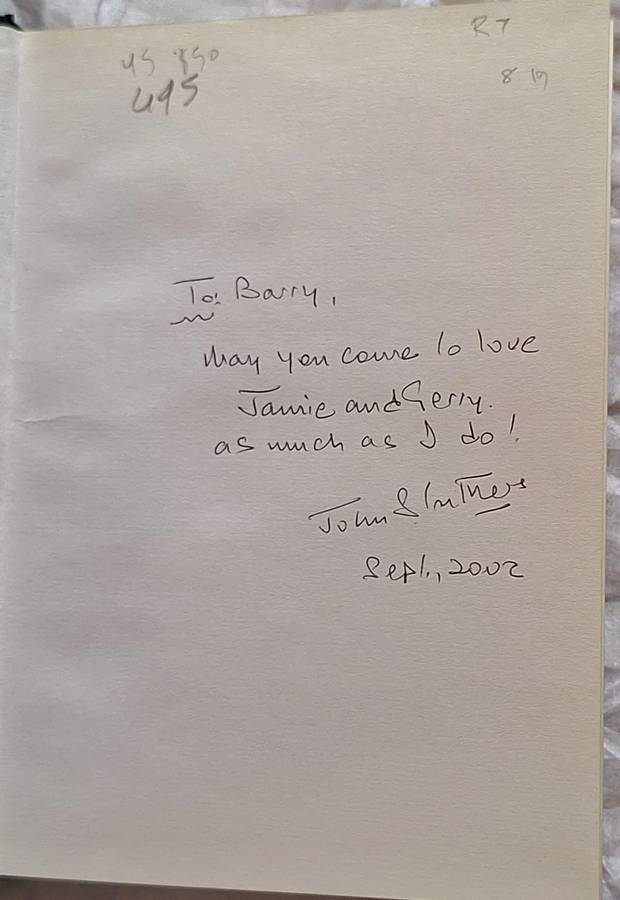 R7
45 850
495
8 19
To: Barry,
May you come to love
Jamie and Gerry.
as much as I do!
John
Sept., 2002